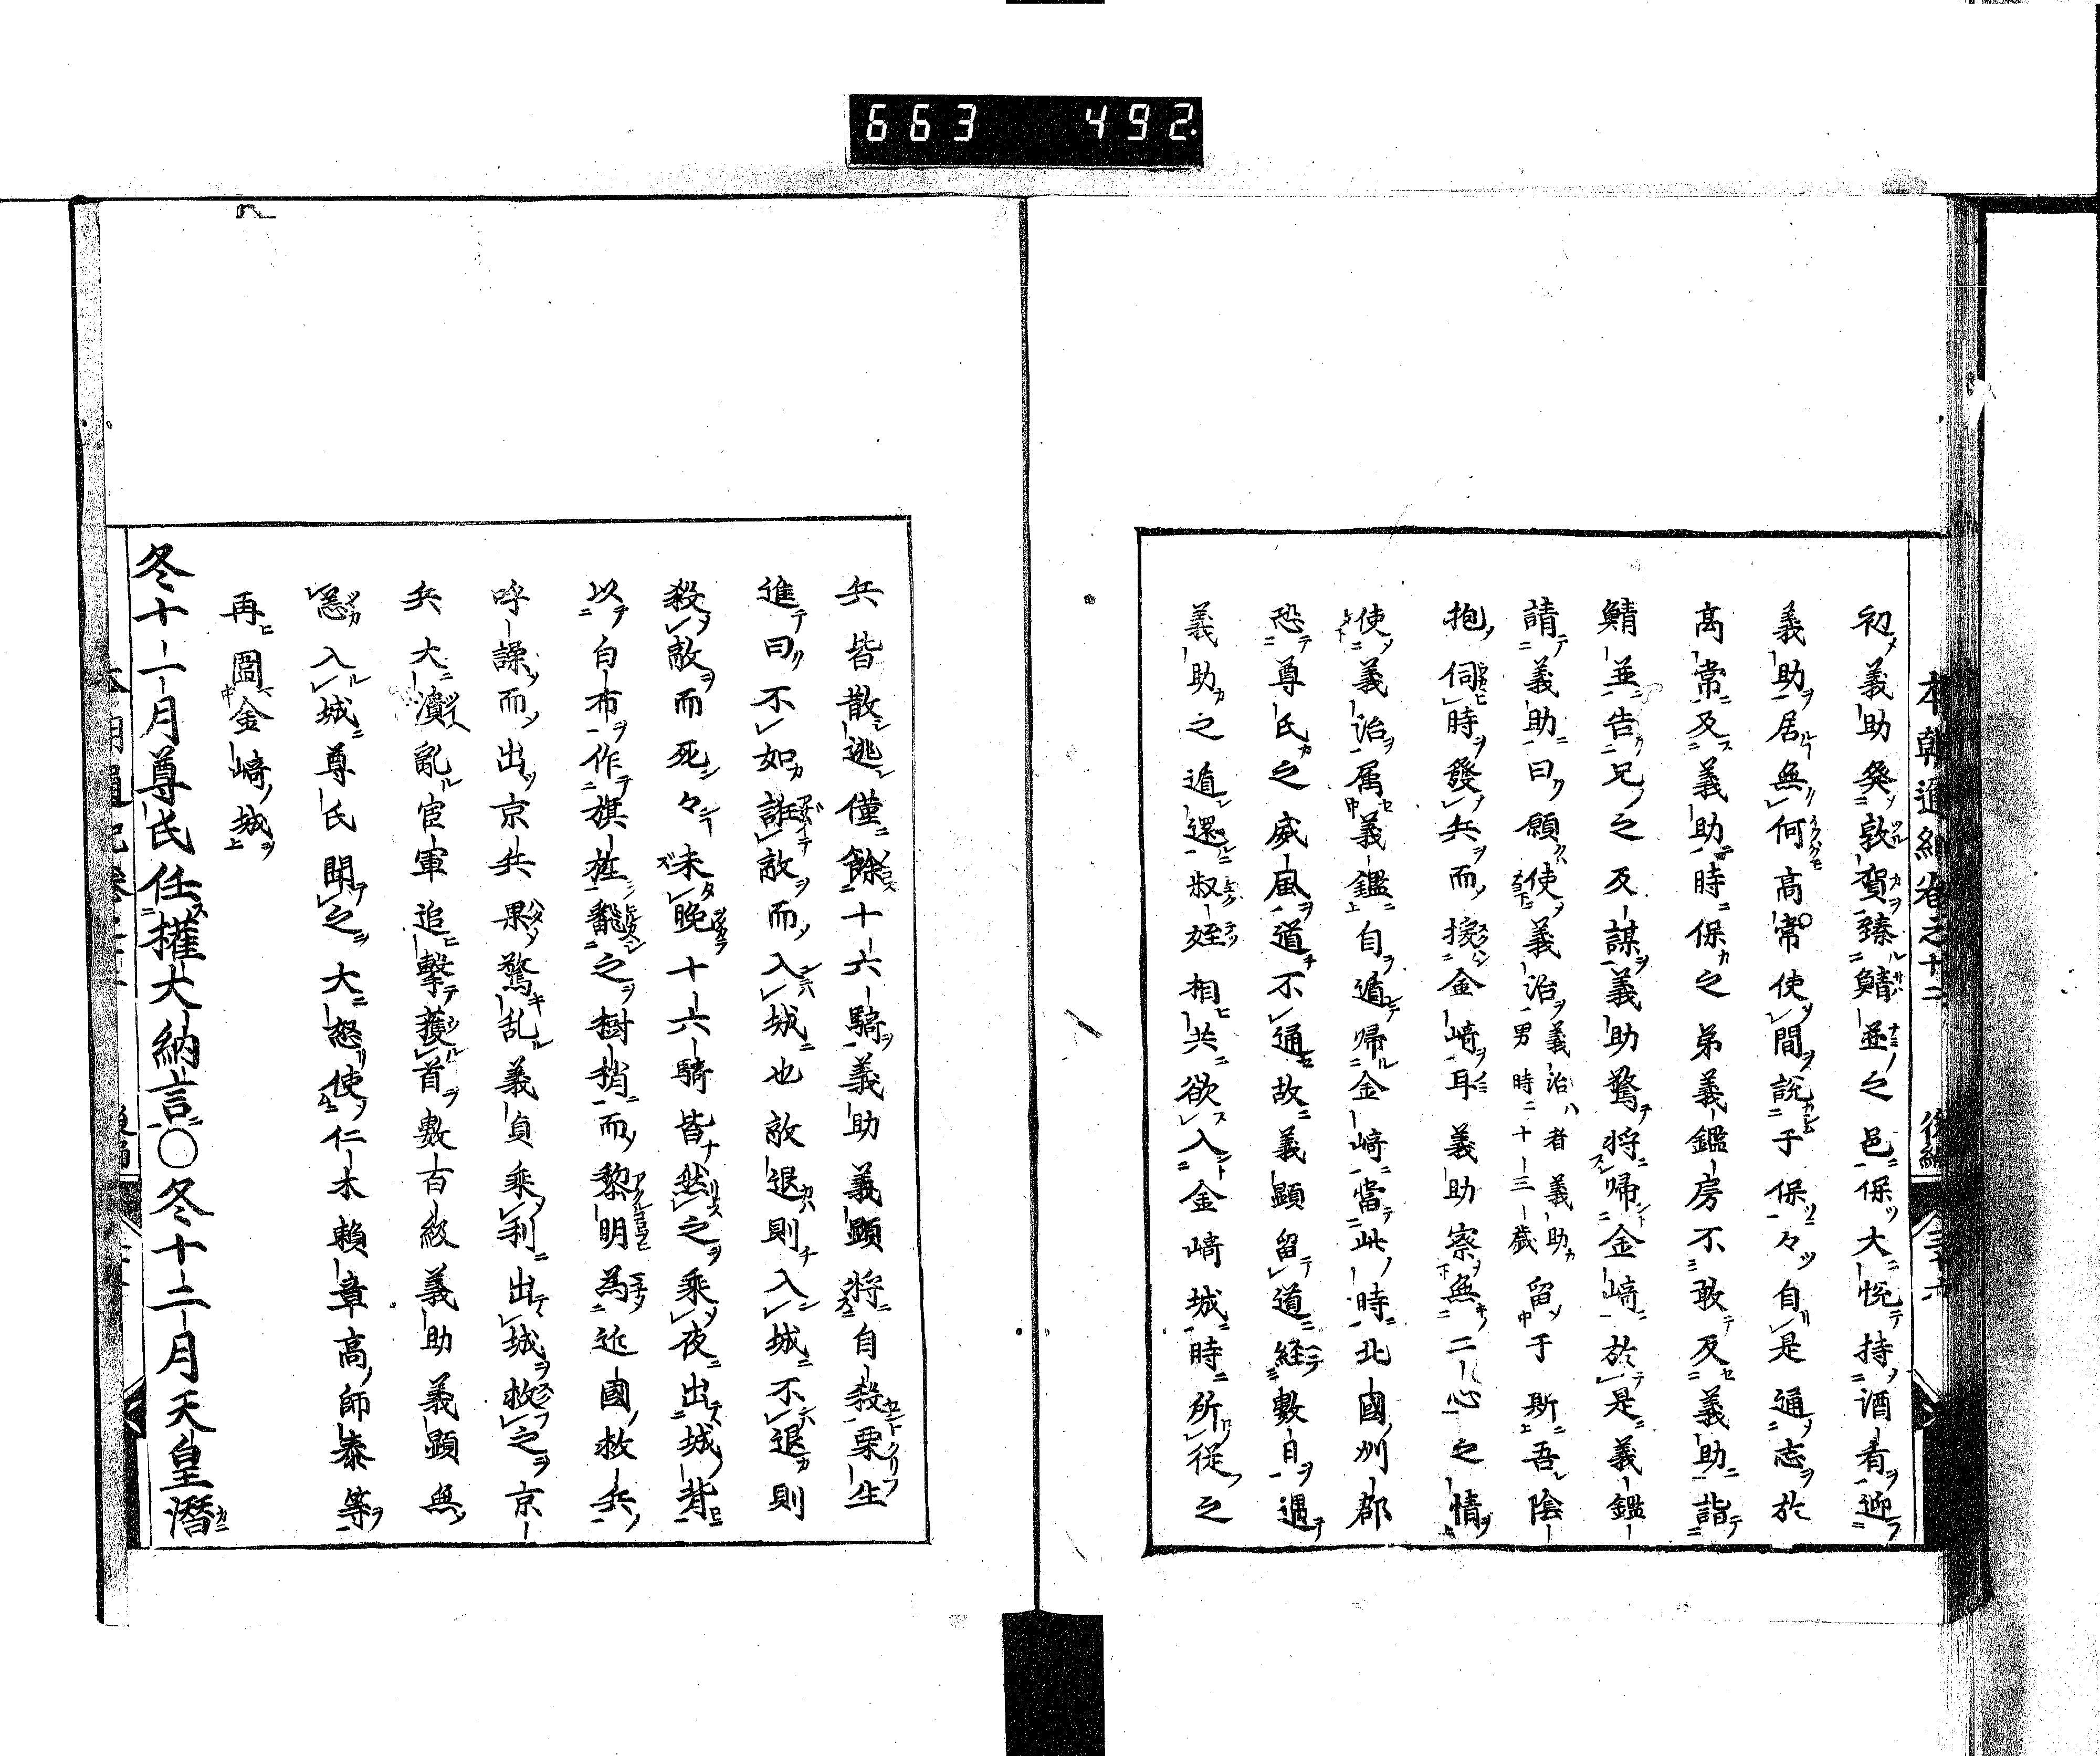 663 492
本朝通紀卷之十二 後編
初義助發敦賀臻鯖並之邑保大悅持酒肴迎
義助居無何高常使間說于保々自是通志於
高常及義助時保之弟義鑑房不敢及義助詣
鯖並告兄之反謀義助驚將帰金崎於是義鑑
請義助曰願使義治義治者義助男時十三歲留于斯吾陰
抱伺時發兵而援金崎耳義助察無二心之情
使義治属義鑑自遁帰金崎當此時北國州郡
恐尊氏之威風道不通故義顕留道経數日遇
義助之遁還叔姪相共欲入金崎城時所從之
兵皆散逃僅餘十六騎義助義顕將自殺栗生
進曰不如誑敵而入城也敵退則入城不退則
殺敵而死々未晩十六騎皆然之乘夜出城背
以白布作旗旌翻之樹梢而黎明為近國救兵
呼譟而出京兵果驚乱義貞乘利出城救之京
兵大潰亂官軍追擊獲首數百級義助義顕無
恙入城尊氏聞之大怒使仁木頼章高師泰等
再圍金崎城
冬十一月尊氏任權大納言○冬十二月天皇潛